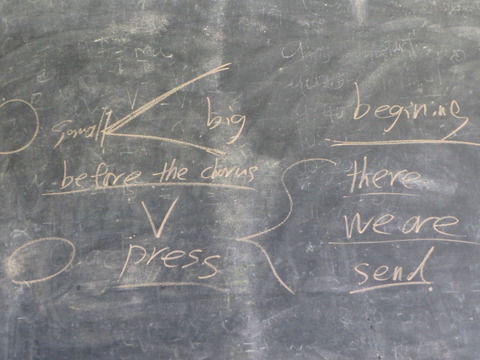 small big
before the chorus
V
press
begining
there
we are
send